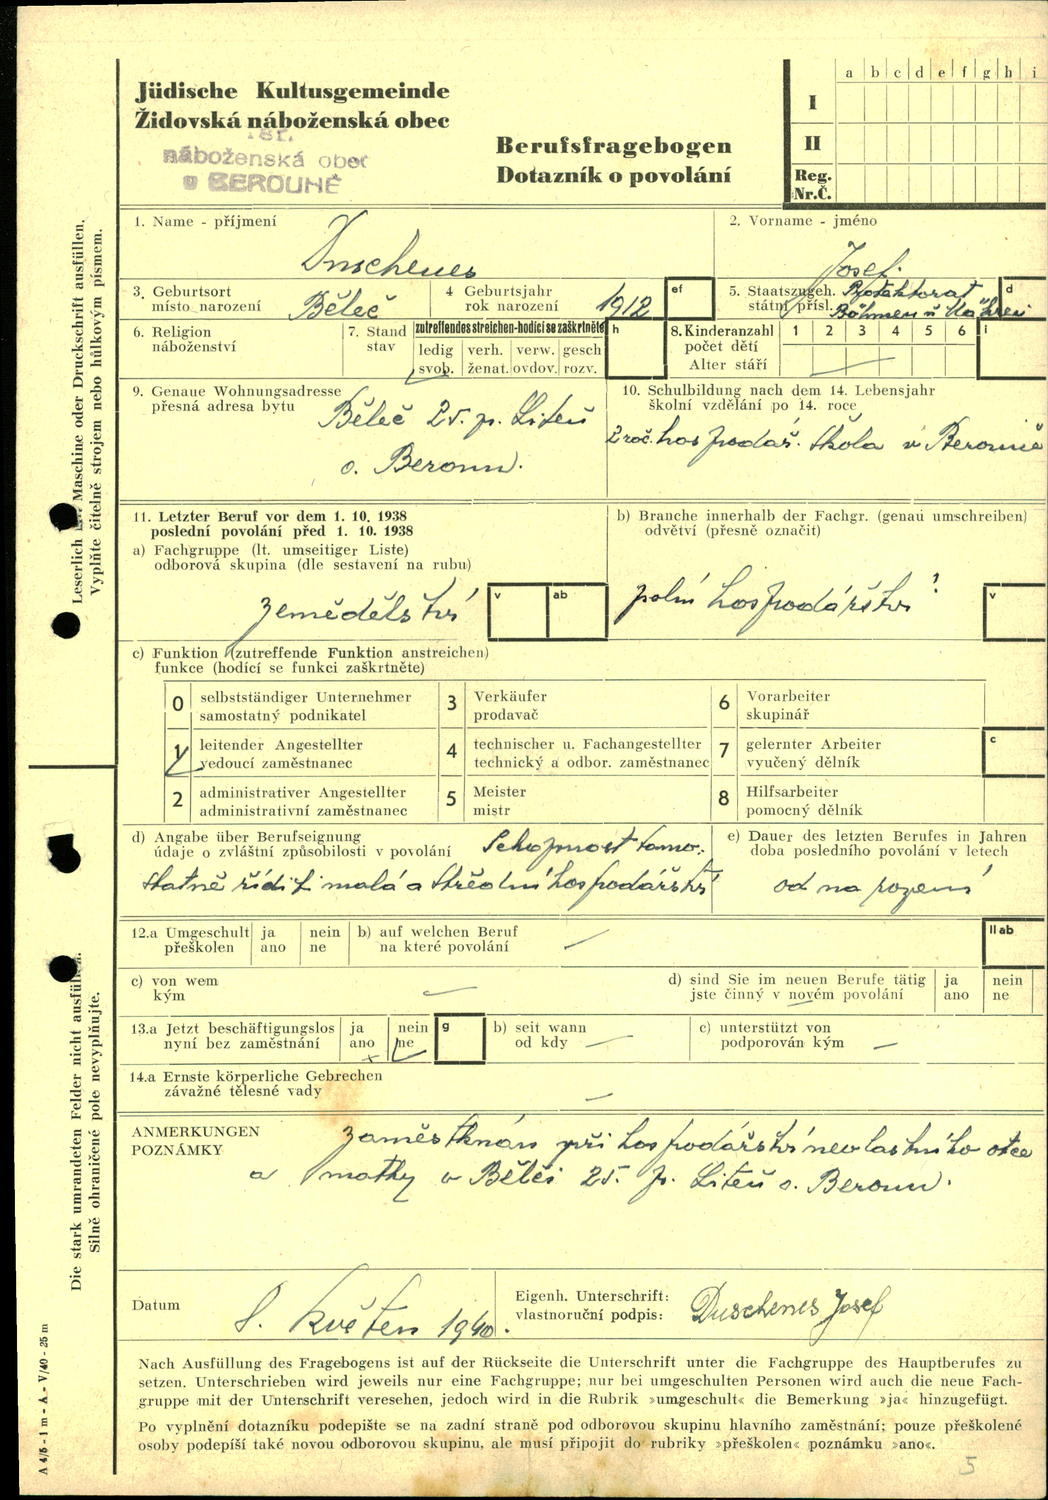 a b c d e f g h i
I
II
Reg.
Nr.Č.
Jüdische Kultusgemeinde
Židovská náboženská obec
náboženská obec
BEROUNĚ
Berufsfragebogen
Dotazník o povolání
1. Name - příjmení
Duschenes
2. Vorname - jméno
Josef.
3. Geburtsort
místo narození
Běleč
4 Geburtsjahr
rok narození
1912
ef
5. Staatszugeh.
státní přísl.
Protektorat
Böhmen u Mähren
d
6. Religion
náboženství
7. Stand
stav
zutreffendes streichen-hodící se zaškrtněte
ledig verh. verw. gesch
svob. ženat. ovdov. rozv.
h
8. Kinderanzahl
počet dětí
Alter stáří
1 2 3 4 5 6
i
9. Genaue Wohnungsadresse
přesná adresa bytu
Běleč 25. p. Liteň
o. Beroun.
10. Schulbildung nach dem 14. Lebensjahr
školní vzdělání po 14. roce
2 roč. hospodář. škola v Berouně
11. Letzter Beruf vor dem 1. 10. 1938
poslední povolání před 1. 10. 1938
a) Fachgruppe (lt. umseitiger Liste)
odborová skupina (dle sestavení na rubu)
zemědělství
v
ab
b) Branche innerhalb der Fachgr. (genau umschreiben)
odvětví (přesně označit)
polní hospodářství
v
c) Funktion (zutreffende Funktion anstreichen)
funkce (hodící se funkci zaškrtněte)
0 selbstständiger Unternehmer
samostatný podnikatel
3 Verkäufer
prodavač
6 Vorarbeiter
skupinář
1 leitender Angestellter
vedoucí zaměstnanec
4 technischer u. Fachangestellter
technický a odbor. zaměstnanec
7 gelernter Arbeiter
vyučený dělník
c
2 administrativer Angestellter
administrativní zaměstnanec
5 Meister
mistr
8 Hilfsarbeiter
pomocný dělník
d) Angabe über Berufseignung
údaje o zvláštní způsobilosti v povolání
Schopnost samo-
statně řídit malá a střední hospodářství
e) Dauer des letzten Berufes in Jahren
doba posledního povolání v letech
od na rození
12.a Umgeschult
přeškolen
ja
ano
nein
ne
b) auf welchen Beruf
na které povolání
II ab
c) von wem
kým
d) sind Sie im neuen Berufe tätig
jste činný v novém povolání
ja
ano
nein
ne
13.a Jetzt beschäftigungslos
nyní bez zaměstnání
ja
ano
nein
ne
g
b) seit wann
od kdy
c) unterstützt von
podporován kým
14.a Ernste körperliche Gebrechen
závažné tělesné vady
ANMERKUNGEN
POZNÁMKY
zaměstknán při hospodářství nevlastního otce
a matky v Bělči 25. p. Liteň o. Beroun.
Datum
8. Květen 1940.
Eigenh. Unterschrift:
vlastnoruční podpis:
Duschenes Josef
Nach Ausfüllung des Fragebogens ist auf der Rückseite die Unterschrift unter die Fachgruppe des Hauptberufes zu
setzen. Unterschrieben wird jeweils nur eine Fachgruppe; nur bei umgeschulten Personen wird auch die neue Fach-
gruppe mit der Unterschrift veresehen, jedoch wird in die Rubrik »umgeschult« die Bemerkung »ja« hinzugefügt.
Po vyplnění dotazníku podepište se na zadní straně pod odborovou skupinu hlavního zaměstnání; pouze přeškolené
osoby podepíší také novou odborovou skupinu, ale musí připojit do rubriky »přeškolen« poznámku »ano«.
5
Leserlich Maschine oder Druckschrift ausfüllen.
Vyplňte čitelně strojem nebo hůlkovým písmem.
Die stark umrandeten Felder nicht ausfüllen.
Silně ohraničené pole nevyplňujte.
A 4/5 - 1 m - A. - V/40 - 25 m